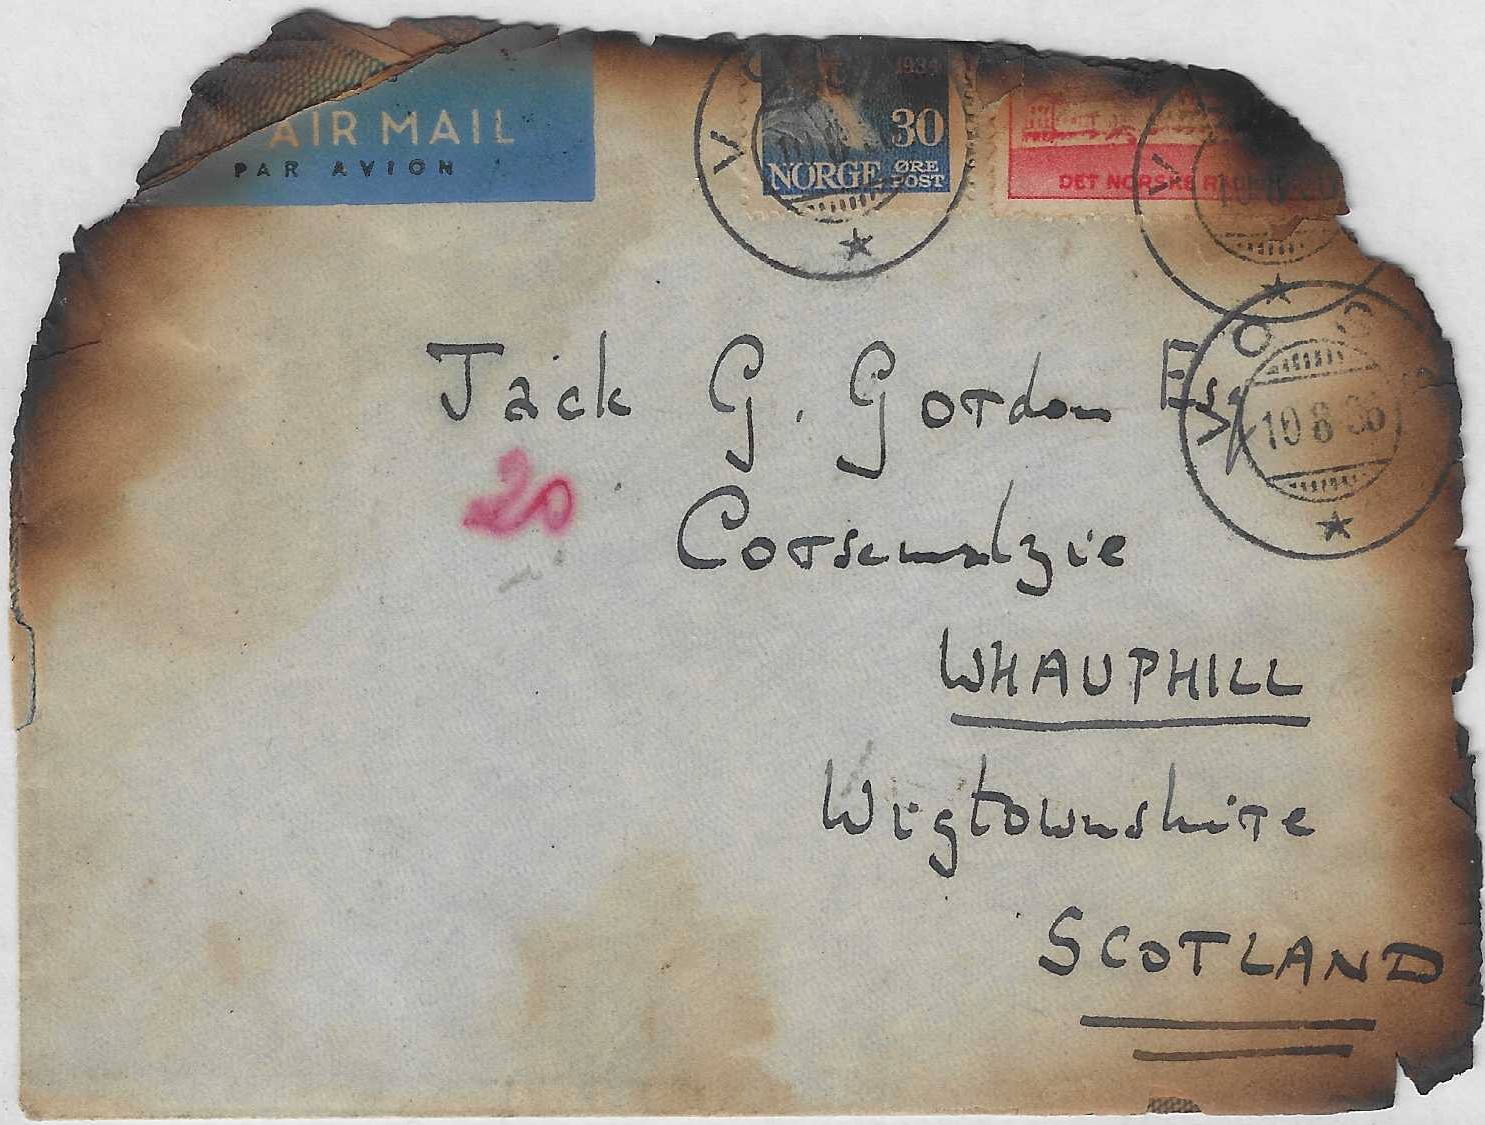 AIR MAIL
PAR AVION
1934
30
NORGE ØRE
POST
DET NORSKE
Jack G. Gordon Esq
20
Corsemalzie
WHAUPHILL
Wigtownshire
SCOTLAND
VOSS
10 8 36